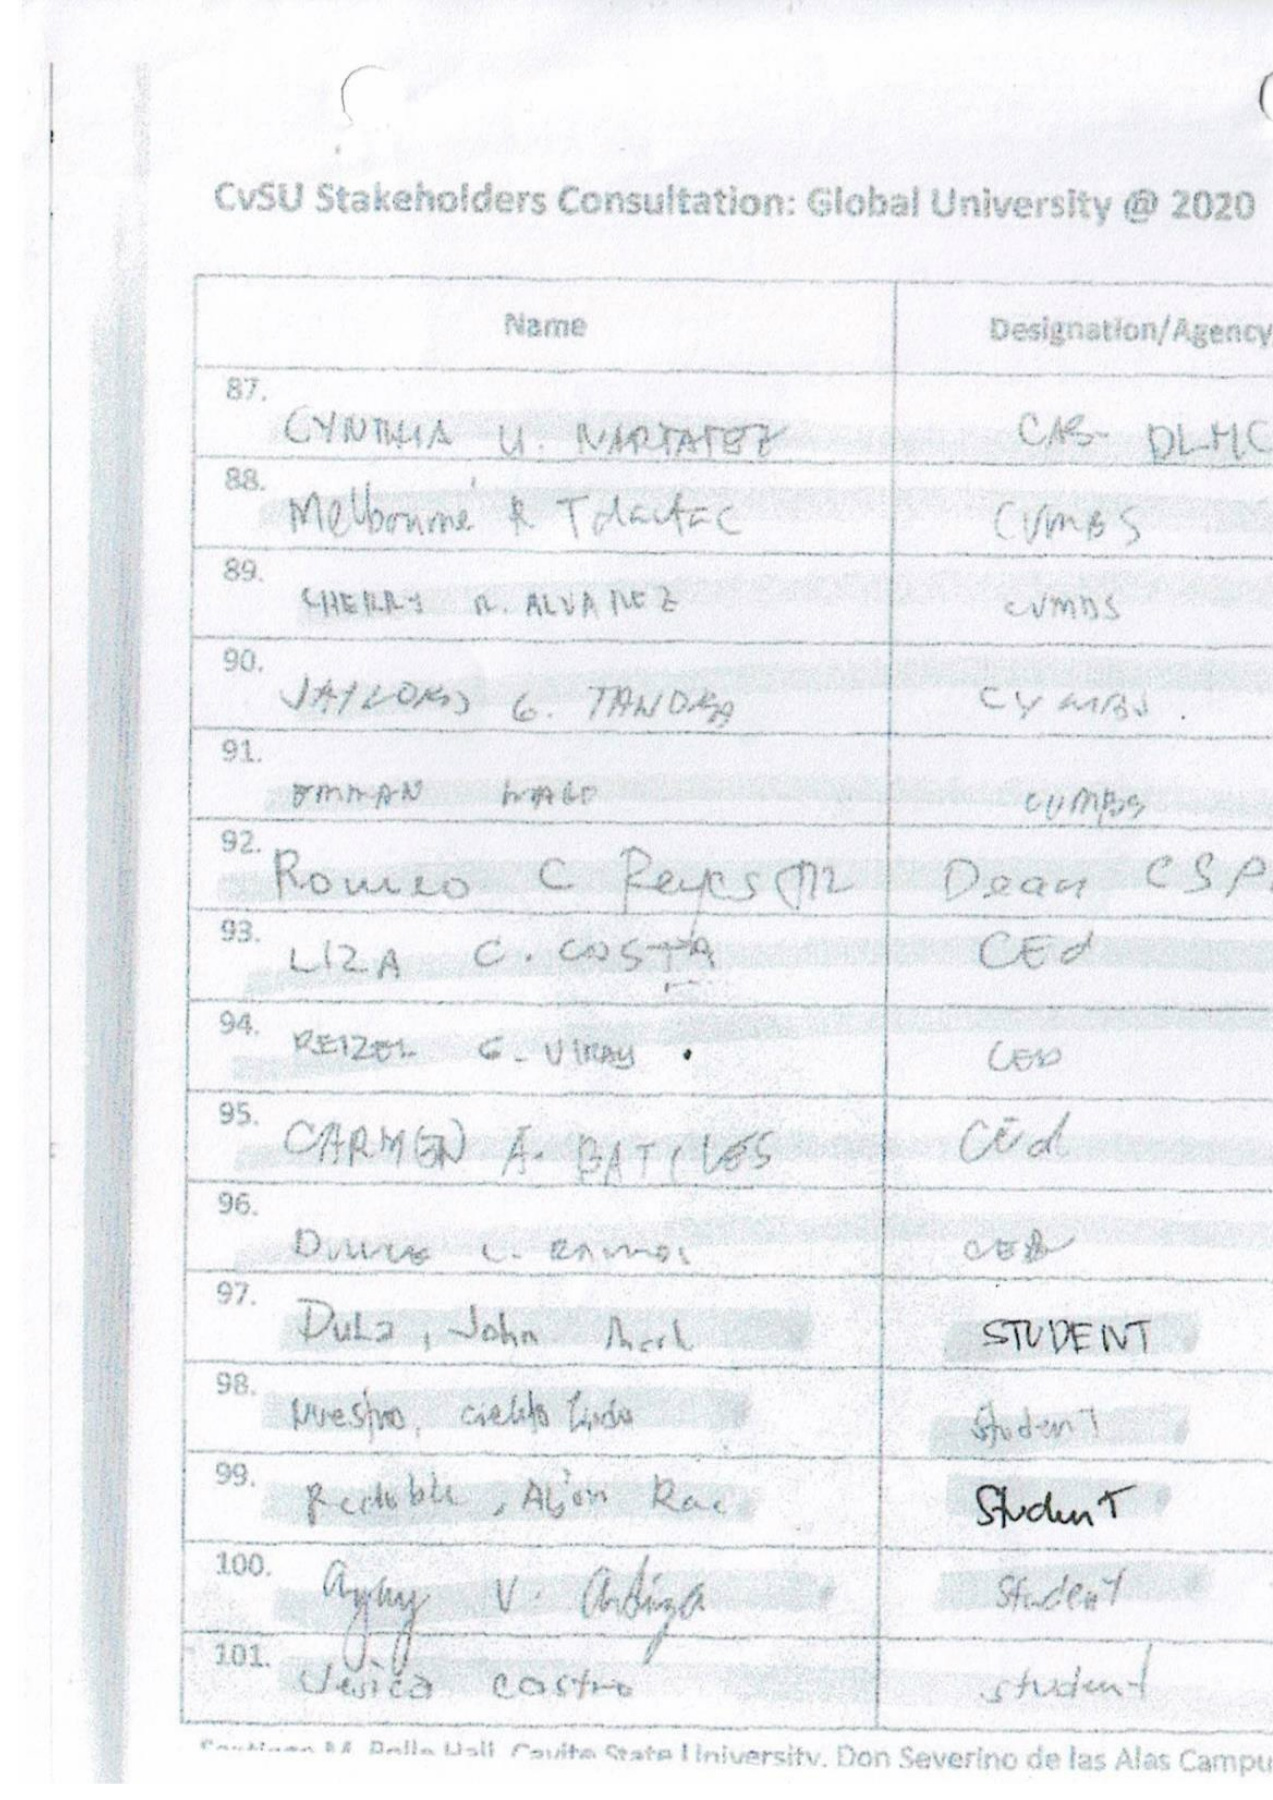 CvSU Stakeholders Consultation: Global University @ 2020
Name Designation/Agency
87. CYNTHIA U. NARTATEZ CAS- DLHC
88. Melbourne R Tolentac CVMBS
89. SHERRY R. ALVAREZ CVMBS
90. G. TANDRA CVMBS.
91. EMMAN CVMBS
92. Romeo C Reyes Dean CSP
93. LIZA C. COSTA CEd
94. REIZEL G. VIRAY . CED
95. CARMEN A. BATILES CEd
96. CED
97. Dula, John Mark STUDENT
98. Nuestro, Cielito Lindo Student
99. Redoble, Aljon Rae. Student
100. V. Student
101. Jesica Castro student
Santiago M. Rolle Hall, Cavite State University, Don Severino de las Alas Campu